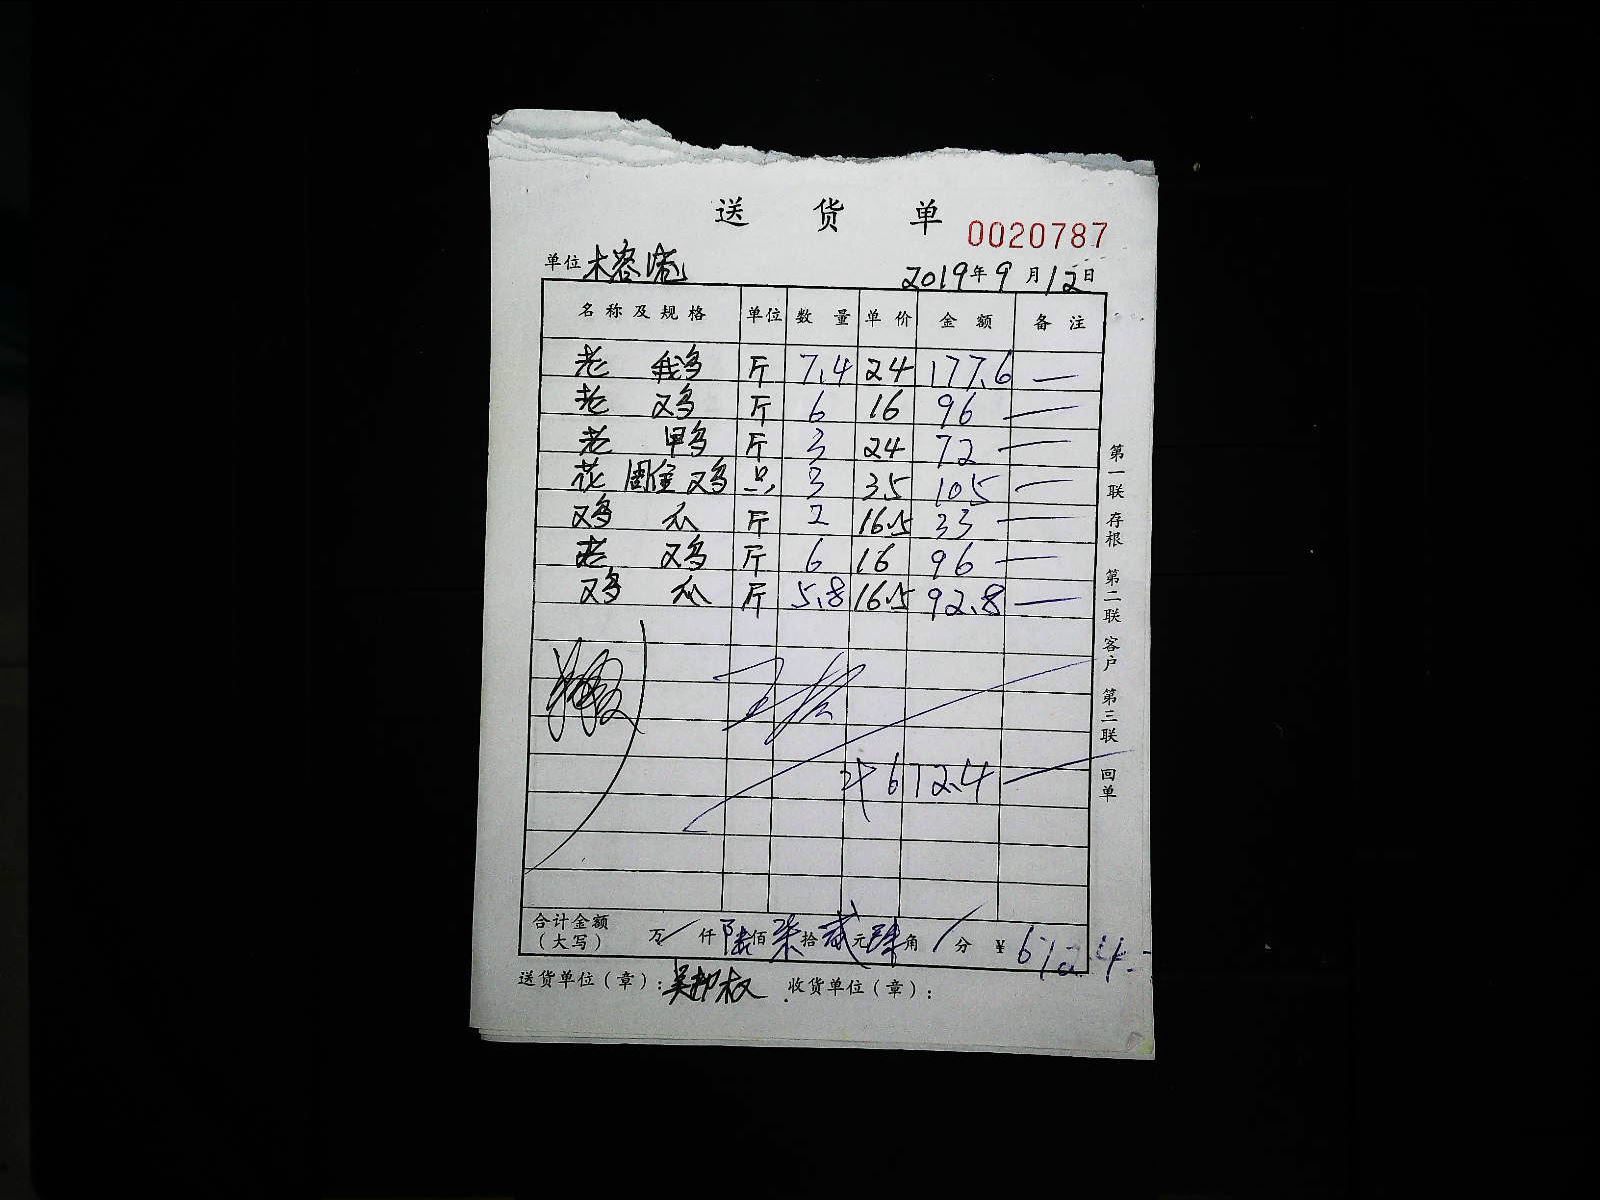 送货单
0020787
单位 木容庵 2019年9月12日
名称及规格 单位 数量 单价 金额 备注
老鹅 斤 7.4 24 177.6 —
老鸡 斤 6 16 96 —
老鸭 斤 3 24 72 —
花雕鸡 只 3 35 105 —
鸡爪 斤 2 16.5 33 —
老鸡 斤 6 16 96 —
鸡爪 斤 5.8 16.5 92.8 —
672.4
合计金额（大写） 万 仟 陆佰柒拾贰元肆角 分 ¥672.4
送货单位（章）： 收货单位（章）：
第一联存根 第二联客户 第三联回单